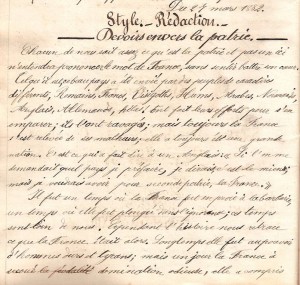 Du 27 mars 1882.
Style. - Rédaction.
Devoirs envers la patrie.
Chacun de nous sait assez ce que c'est que la patrie et personne ici
n'entendra prononcer le mot de France, sans sentir battre son cœur.
ce beau pays a été envahi par des peuples de caractères
différents, Romains, Francs, Wisigoths, Huns, Arabes, Normands,
Anglais, Allemands, tous ont fait leurs efforts pour s'en
emparer; ils l'ont ravagée; mais toujours la France
s'est relevée de ses malheurs; elle a toujours été une grande
nation. C'est ce qui a fait dire à un Anglais: « Si l'on me
demandait quel pays je préfère, je dirais c'est le mien;
mais je voudrais avoir pour seconde patrie, la France. »
Il fut un temps où la France fut en proie à la barbarie,
un temps où elle fut plongée dans l'ignorance; ces temps
sont loin de nous. Cependant l'histoire nous retrace
ce que la France était alors. Longtemps elle fut au pouvoir
d'hommes fiers et tyrans; mais un jour la France a
secoué la féodalité domination odieuse, elle a compris